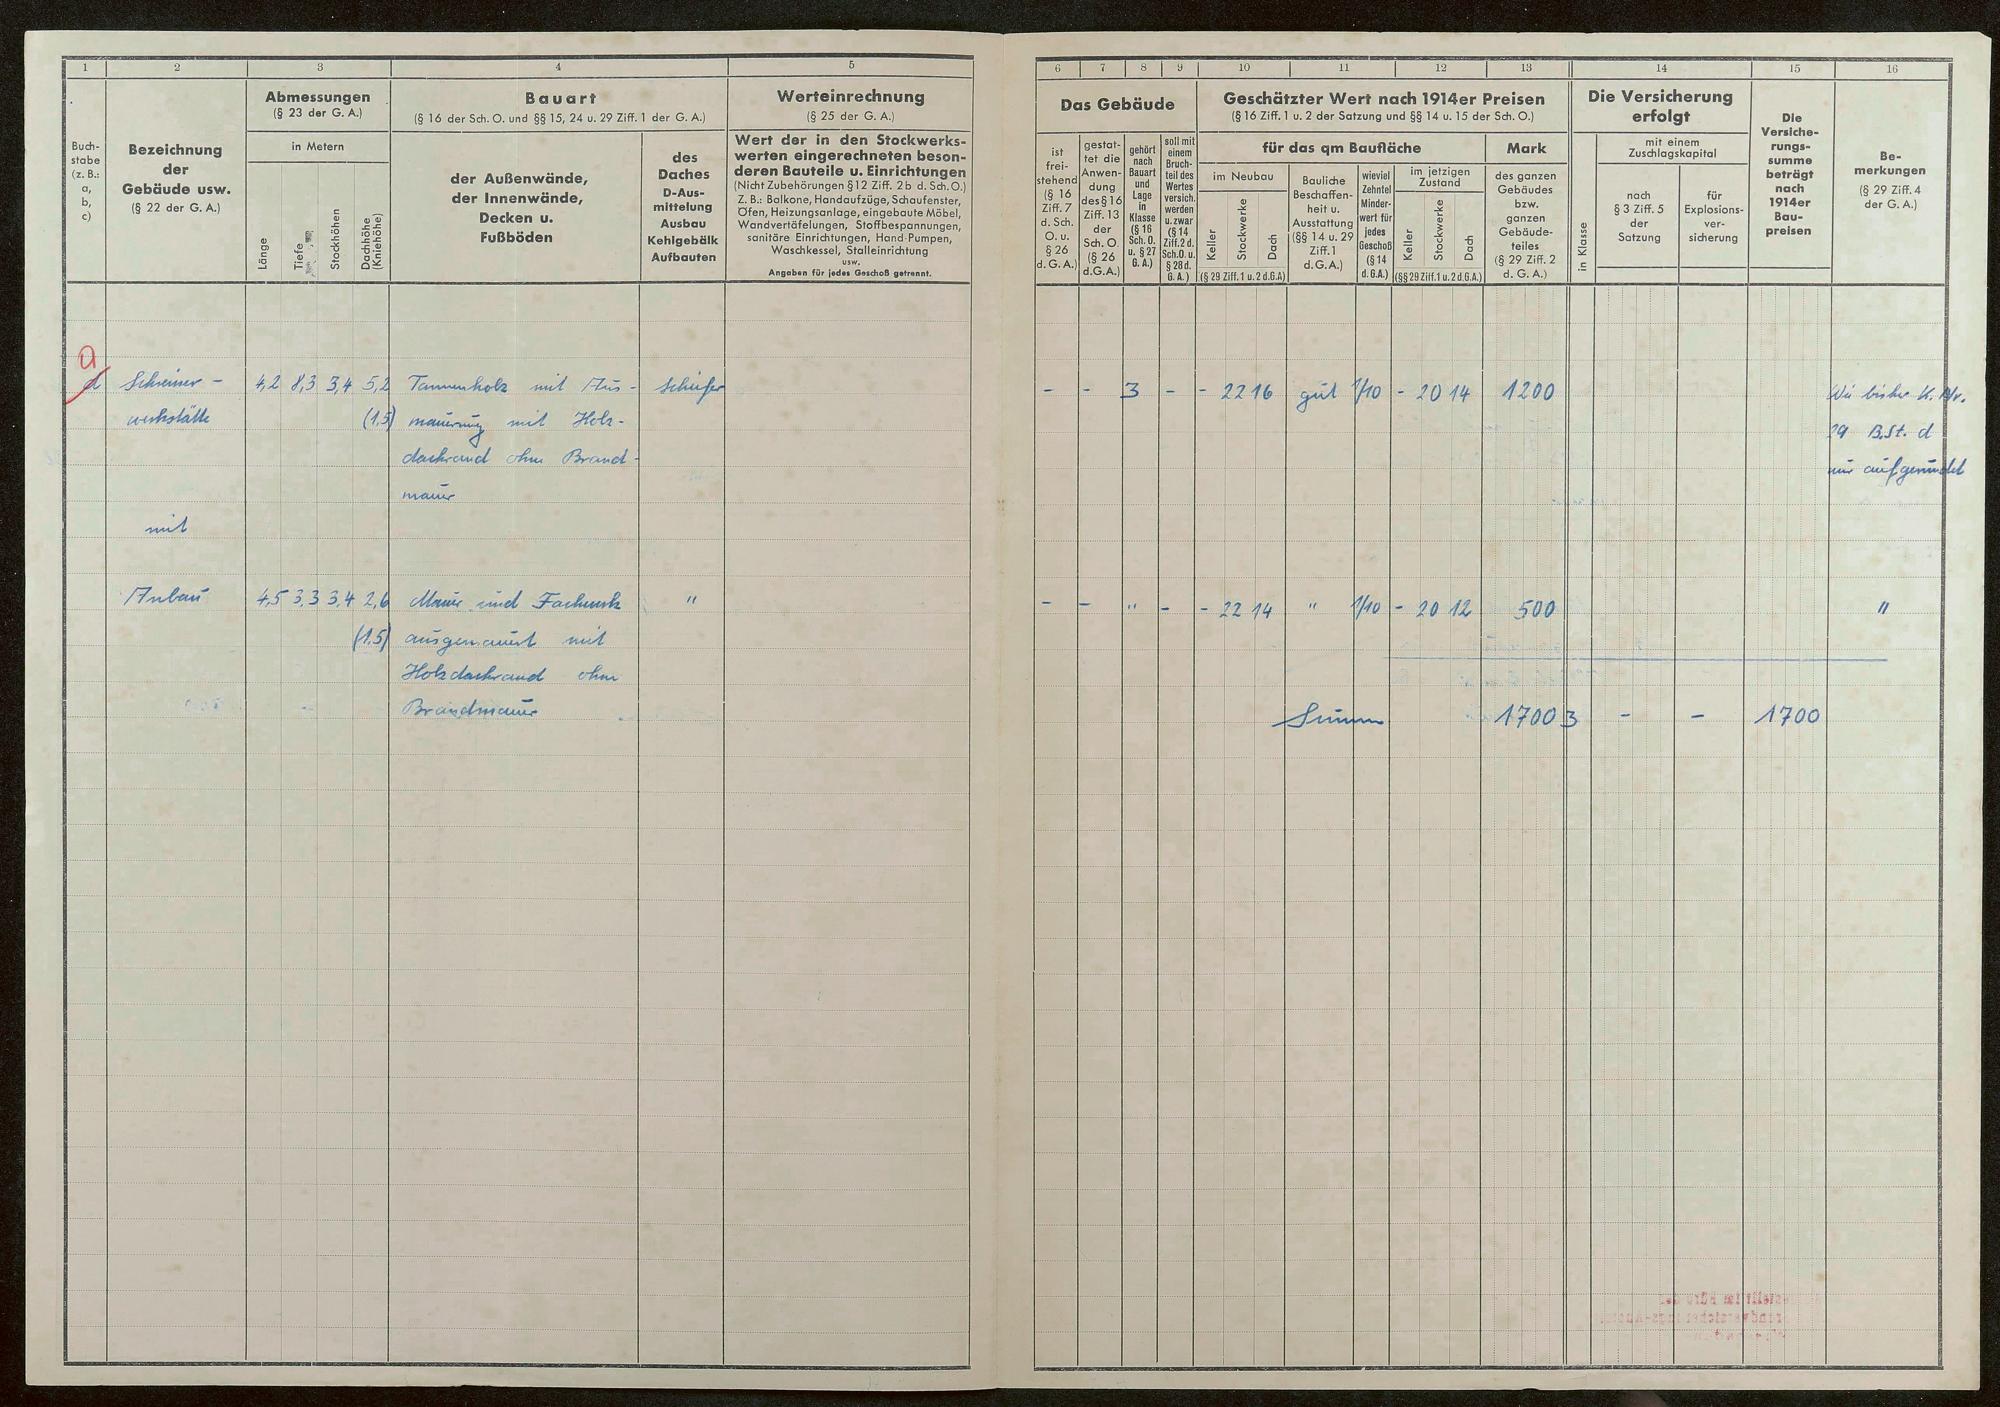 1 2 3 4 5
Buch-
stabe
(z. B.:
a,
b,
c)
Bezeichnung
der
Gebäude usw.
(§ 22 der G. A.)
Abmessungen
(§ 23 der G. A.)
in Metern
Länge
Tiefe
Stockhöhen
Dachhöhe
(Kniehöhe)
Bauart
(§ 16 der Sch. O. und §§ 15, 24 u. 29 Ziff. 1 der G. A.)
der Außenwände,
der Innenwände,
Decken u.
Fußböden
des
Daches
D-Aus-
mittelung
Ausbau
Kehlgebälk
Aufbauten
Werteinrechnung
(§ 25 der G. A.)
Wert der in den Stockwerks-
werten eingerechneten beson-
deren Bauteile u. Einrichtungen
(Nicht Zubehörungen § 12 Ziff. 2b d. Sch. O.)
Z. B.: Balkone, Handaufzüge, Schaufenster,
Öfen, Heizungsanlage, eingebaute Möbel,
Wandvertäfelungen, Stoffbespannungen,
sanitäre Einrichtungen, Hand-Pumpen,
Waschkessel, Stalleinrichtung
usw.
Angaben für jedes Geschoß getrennt.
a
d Schreiner - 4,2 8,3 3,4 5,2 Tannenholz mit Aus- Schiefer
werkstätte (1,5) mauerung mit Holz-
dachrand ohne Brand-
mauer
mit
Anbau 4,5 3,3 3,4 2,6 Mauer und Fachwerk "
(1,5) ausgemauert mit
Holzdachrand ohne
Brandmauer
6 7 8 9 10 11 12 13 14 15 16
Das Gebäude
ist
frei-
stehend
(§ 16
Ziff. 7
d. Sch.
O. u.
§ 26
d. G. A.)
gestat-
tet die
Anwen-
dung
des § 16
Ziff. 13
der
Sch. O.
(§ 26
d. G. A.)
gehört
nach
Bauart
und
Lage
in
Klasse
(§ 16
Sch. O.
u. § 27
G. A.)
soll mit
einem
Bruch-
teil des
Wertes
versich.
werden
u. zwar
(§ 14
Ziff. 2 d.
Sch. O. u.
§ 28 d.
G. A.)
Geschätzter Wert nach 1914er Preisen
(§ 16 Ziff. 1 u. 2 der Satzung und §§ 14 u. 15 der Sch. O.)
für das qm Baufläche
im Neubau
Keller
Stockwerke
Dach
(§ 29 Ziff. 1 u. 2 d. G. A)
Bauliche
Beschaffen-
heit u.
Ausstattung
(§§ 14 u. 29
Ziff. 1
d. G. A.)
wieviel
Zehntel
Minder-
wert für
jedes
Geschoß
(§ 14
d. G. A.)
im jetzigen
Zustand
Keller
Stockwerke
Dach
(§§ 29 Ziff. 1 u. 2 d. G. A.)
Mark
des ganzen
Gebäudes
bzw.
ganzen
Gebäude-
teiles
(§ 29 Ziff. 2
d. G. A.)
Die Versicherung
erfolgt
in Klasse
mit einem
Zuschlagskapital
nach
§ 3 Ziff. 5
der
Satzung
für
Explosions-
ver-
sicherung
Die
Versiche-
rungs-
summe
beträgt
nach
1914er
Bau-
preisen
Be-
merkungen
(§ 29 Ziff. 4
der G. A.)
- - 3 - - 22 16 gut 1/10 - 20 14 1200 Wie bisher K. Nr.
29 B.St. d
nur aufgerundet
- - " - - 22 14 " 1/10 - 20 12 500 "
Summe 1700 3 - - 1700